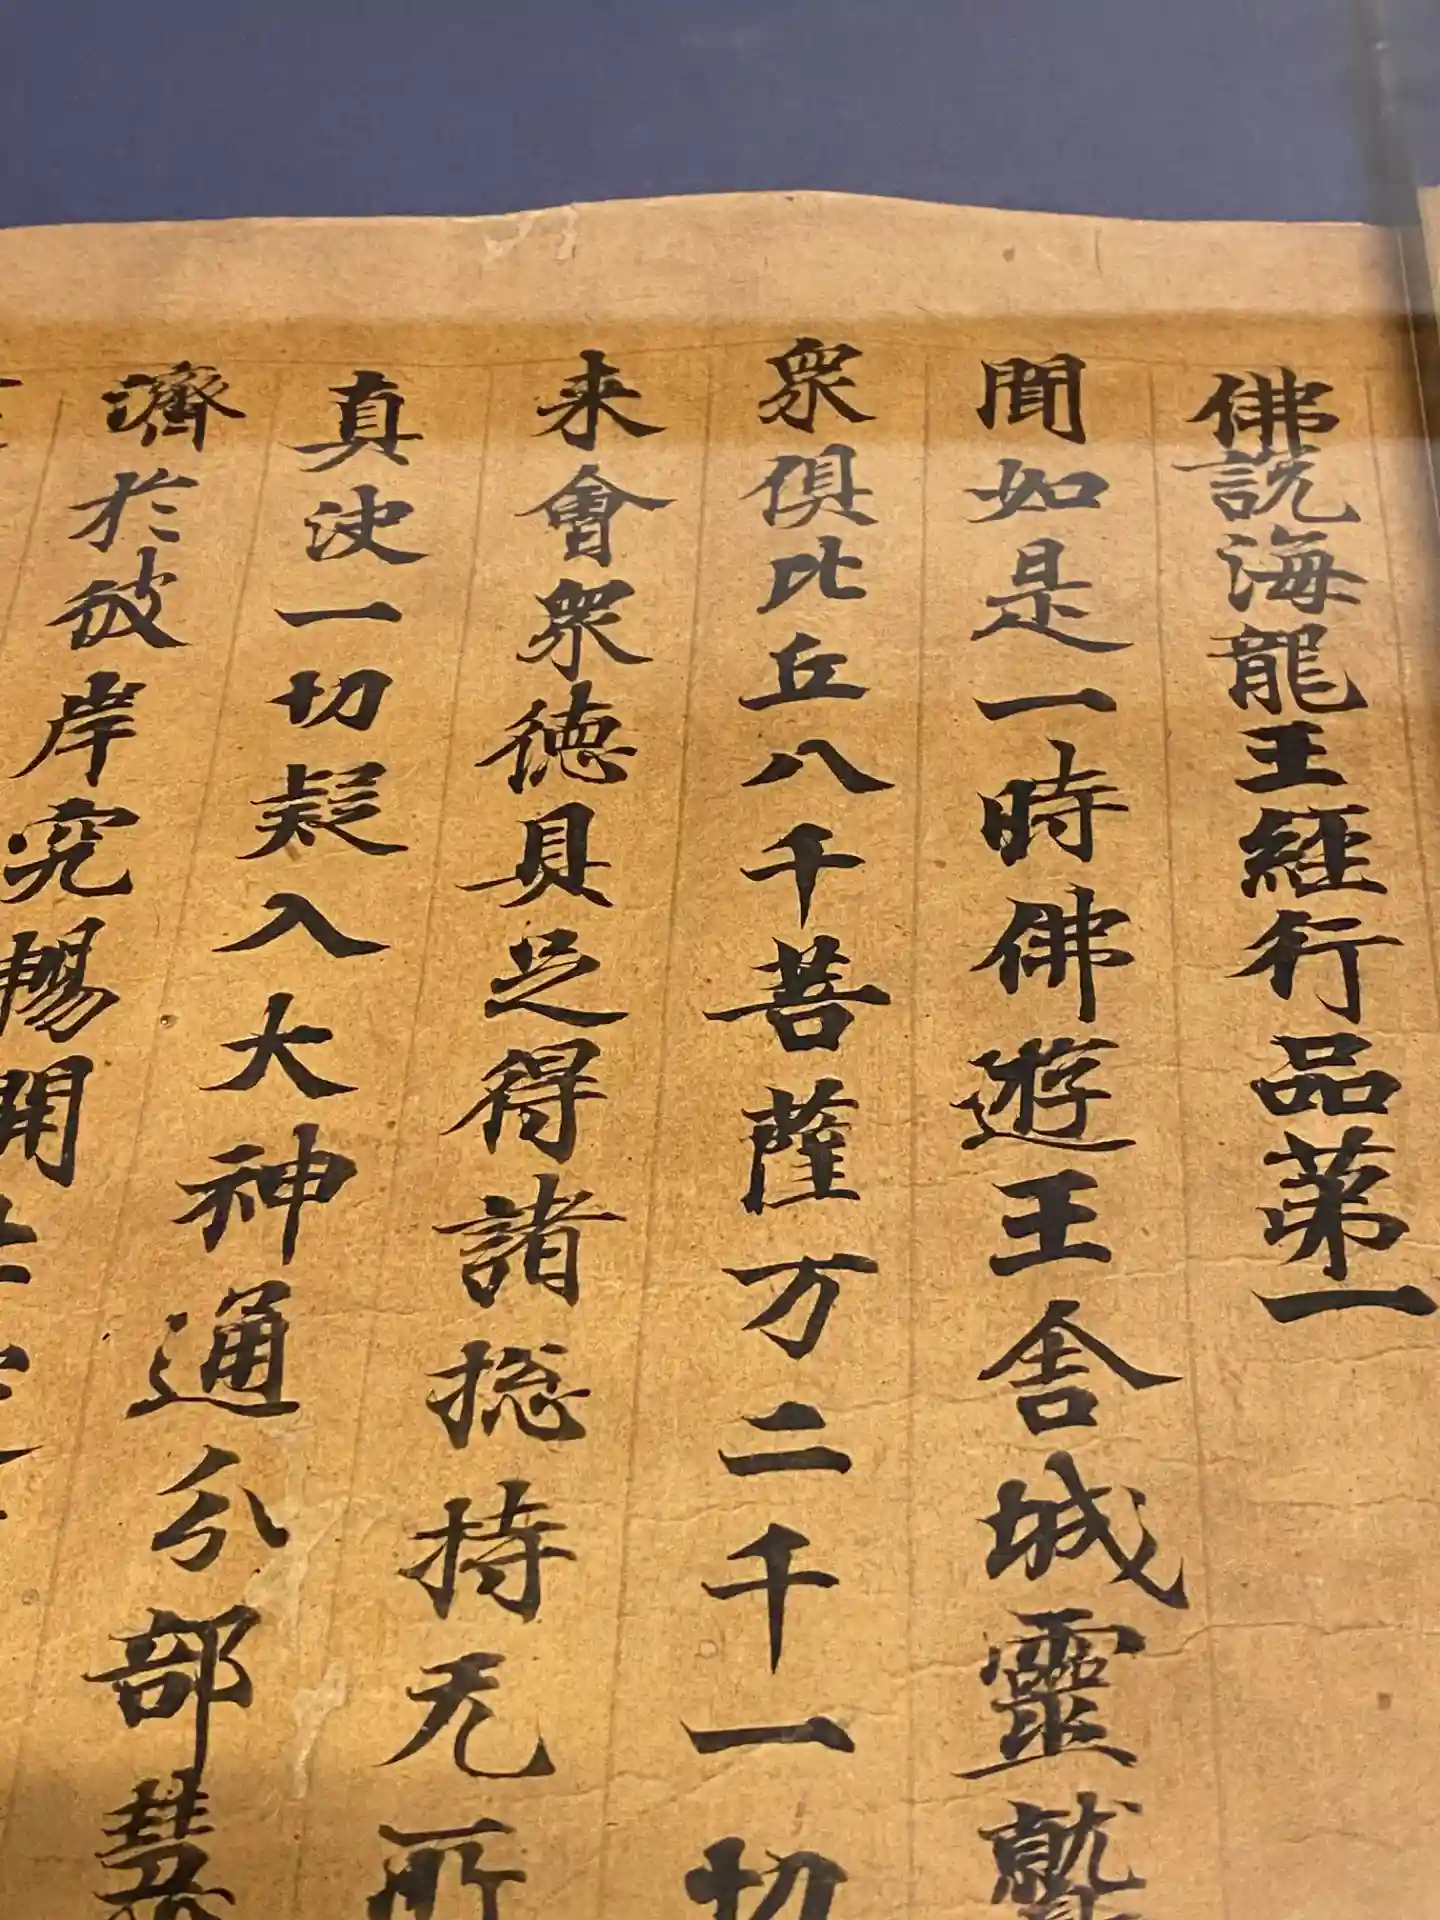 佛說海龍王經行品第一
聞如是一時佛遊王舍城靈鷲
眾俱比丘八千菩薩万二千一切
来會眾德具足得諸捴持无所
真決一切疑入大神通分部慧
濟於彼岸究暢開